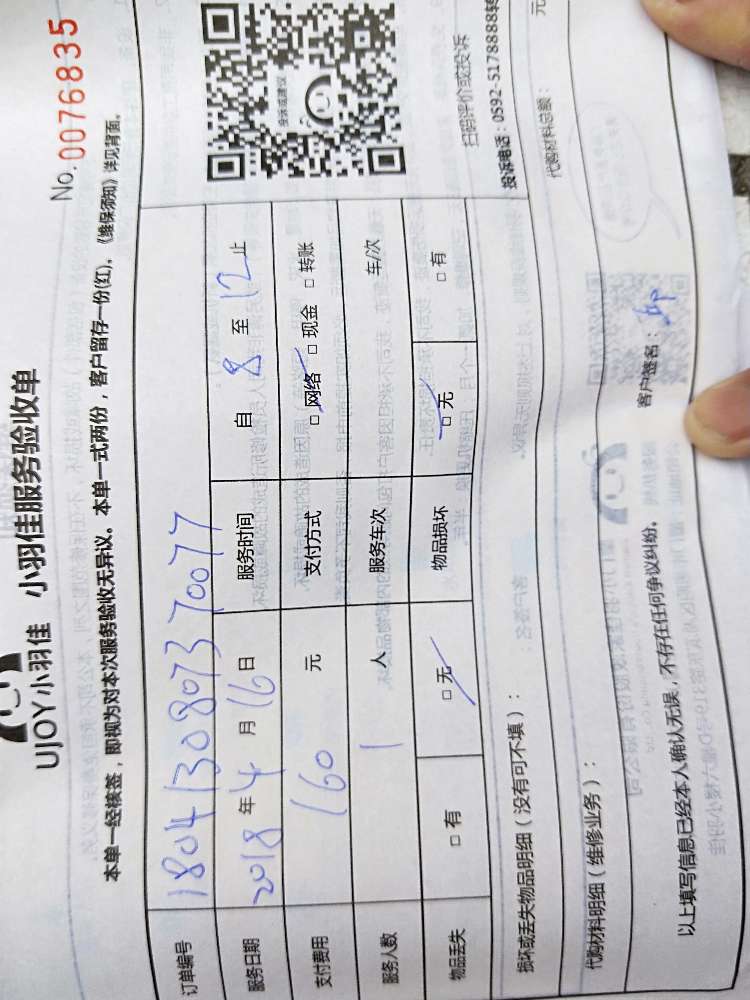 UJOY小羽佳 小羽佳服务验收单
No.0076835
本单一经核签，即视为对本次服务验收无异议。本单一式两份，客户留存一份(红)，《维保须知》详见背面。
订单编号 180413080737 0077
服务日期 2018年4月16日 服务时间 自 8 至 12 止
支付费用 160 元 支付方式 □网络 □现金 □转账
服务人数 1 人 服务车次 车/次
物品丢失 □有 □无 物品损坏 □无 □有
投诉或建议
扫码评价或投诉
投诉电话：0592-5178888转
损坏或丢失物品明细（没有可不填）：
元
代购材料明细（维修业务）：
代购材料总额：
以上填写信息已经本人确认无误，不存在任何争议纠纷。
客户签名：